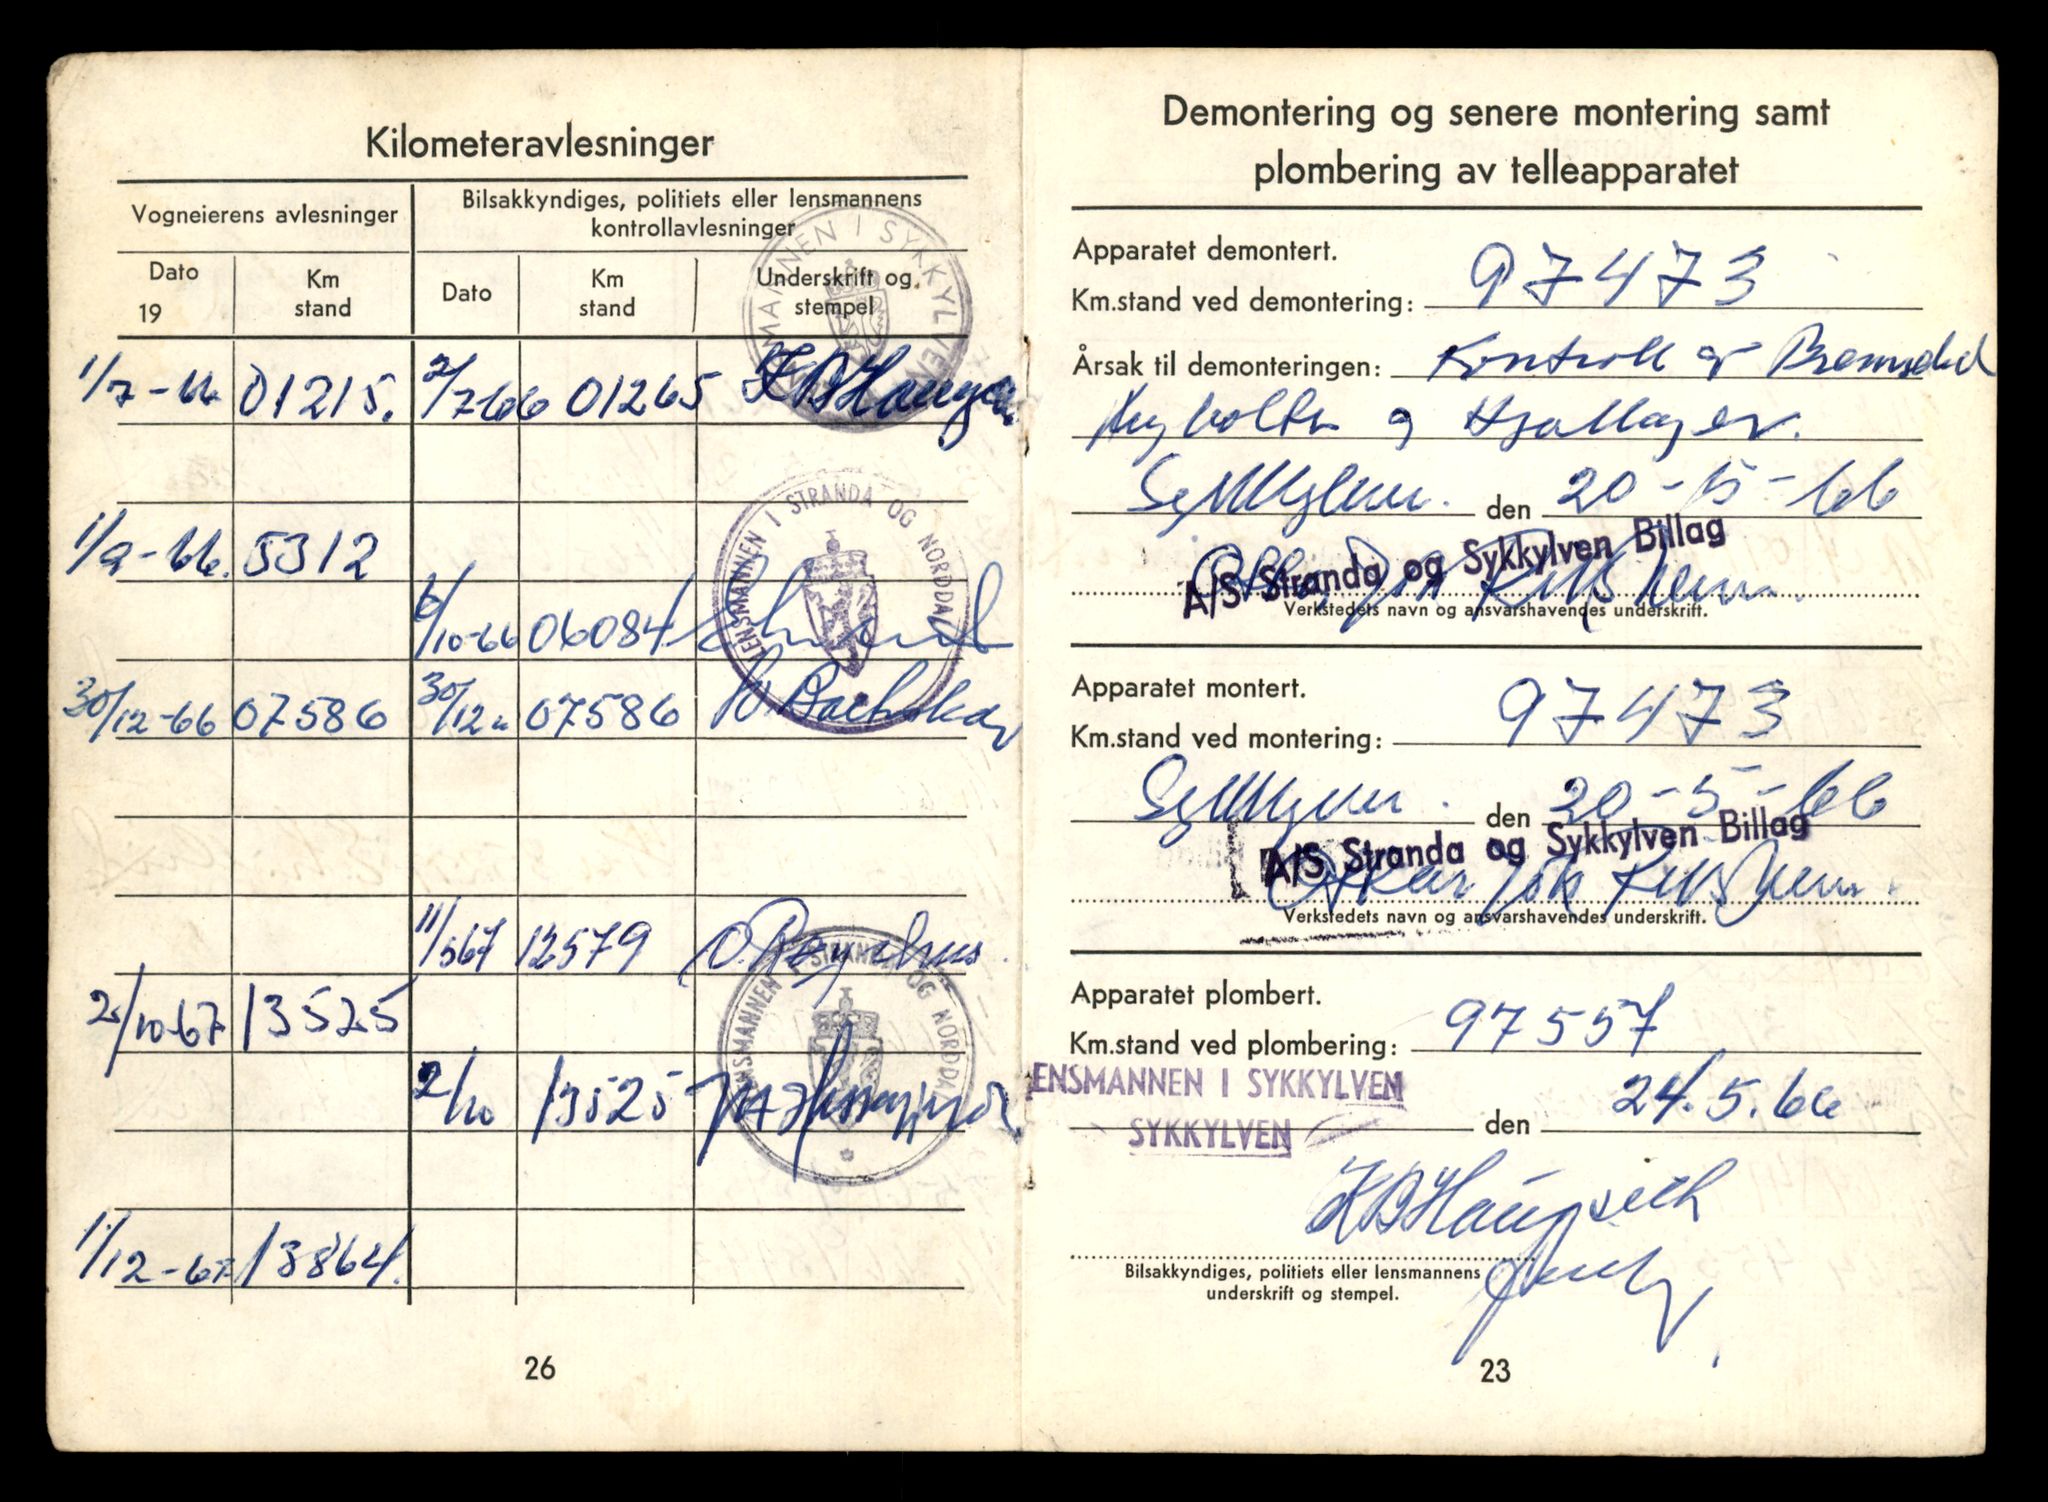 Kilometeravlesninger
Vogneierens avlesninger
Bilsakkyndiges, politiets eller lensmannens
kontrollavlesninger
Dato
19
Km
stand
Dato
Km
stand
Underskrift og
stempel
LENSMANNEN I SYKKYLVEN
1/7-66 01215. 2/7-66 01265
LENSMANNEN I STRANDA OG NORDDAL
1/9-66. 5312
6/10-66 06084
30/12-66 07586 30/12 " 07586
11/567 12579
LENSMANNEN I STRANDA OG NORDDAL
2/10-67 13525
2/10 13525
1/12-67 13864.
26
Demontering og senere montering samt
plombering av telleapparatet
Apparatet demontert.
Km.stand ved demontering: 97473
Årsak til demonteringen: Kontroll og
og Hjullager.
Sykkylven. den 20-5-66
A/S Stranda og Sykkylven Billag
Verkstedets navn og ansvarshavendes underskrift.
Apparatet montert.
Km.stand ved montering: 97473
Sykkylven. den 20-5-66
A/S Stranda og Sykkylven Billag
Verkstedets navn og ansvarshavendes underskrift.
Apparatet plombert.
Km.stand ved plombering: 97557
LENSMANNEN I SYKKYLVEN
SYKKYLVEN
den 24.5.66
K B Haugseth
Bilsakkyndiges, politiets eller lensmannens
underskrift og stempel.
23